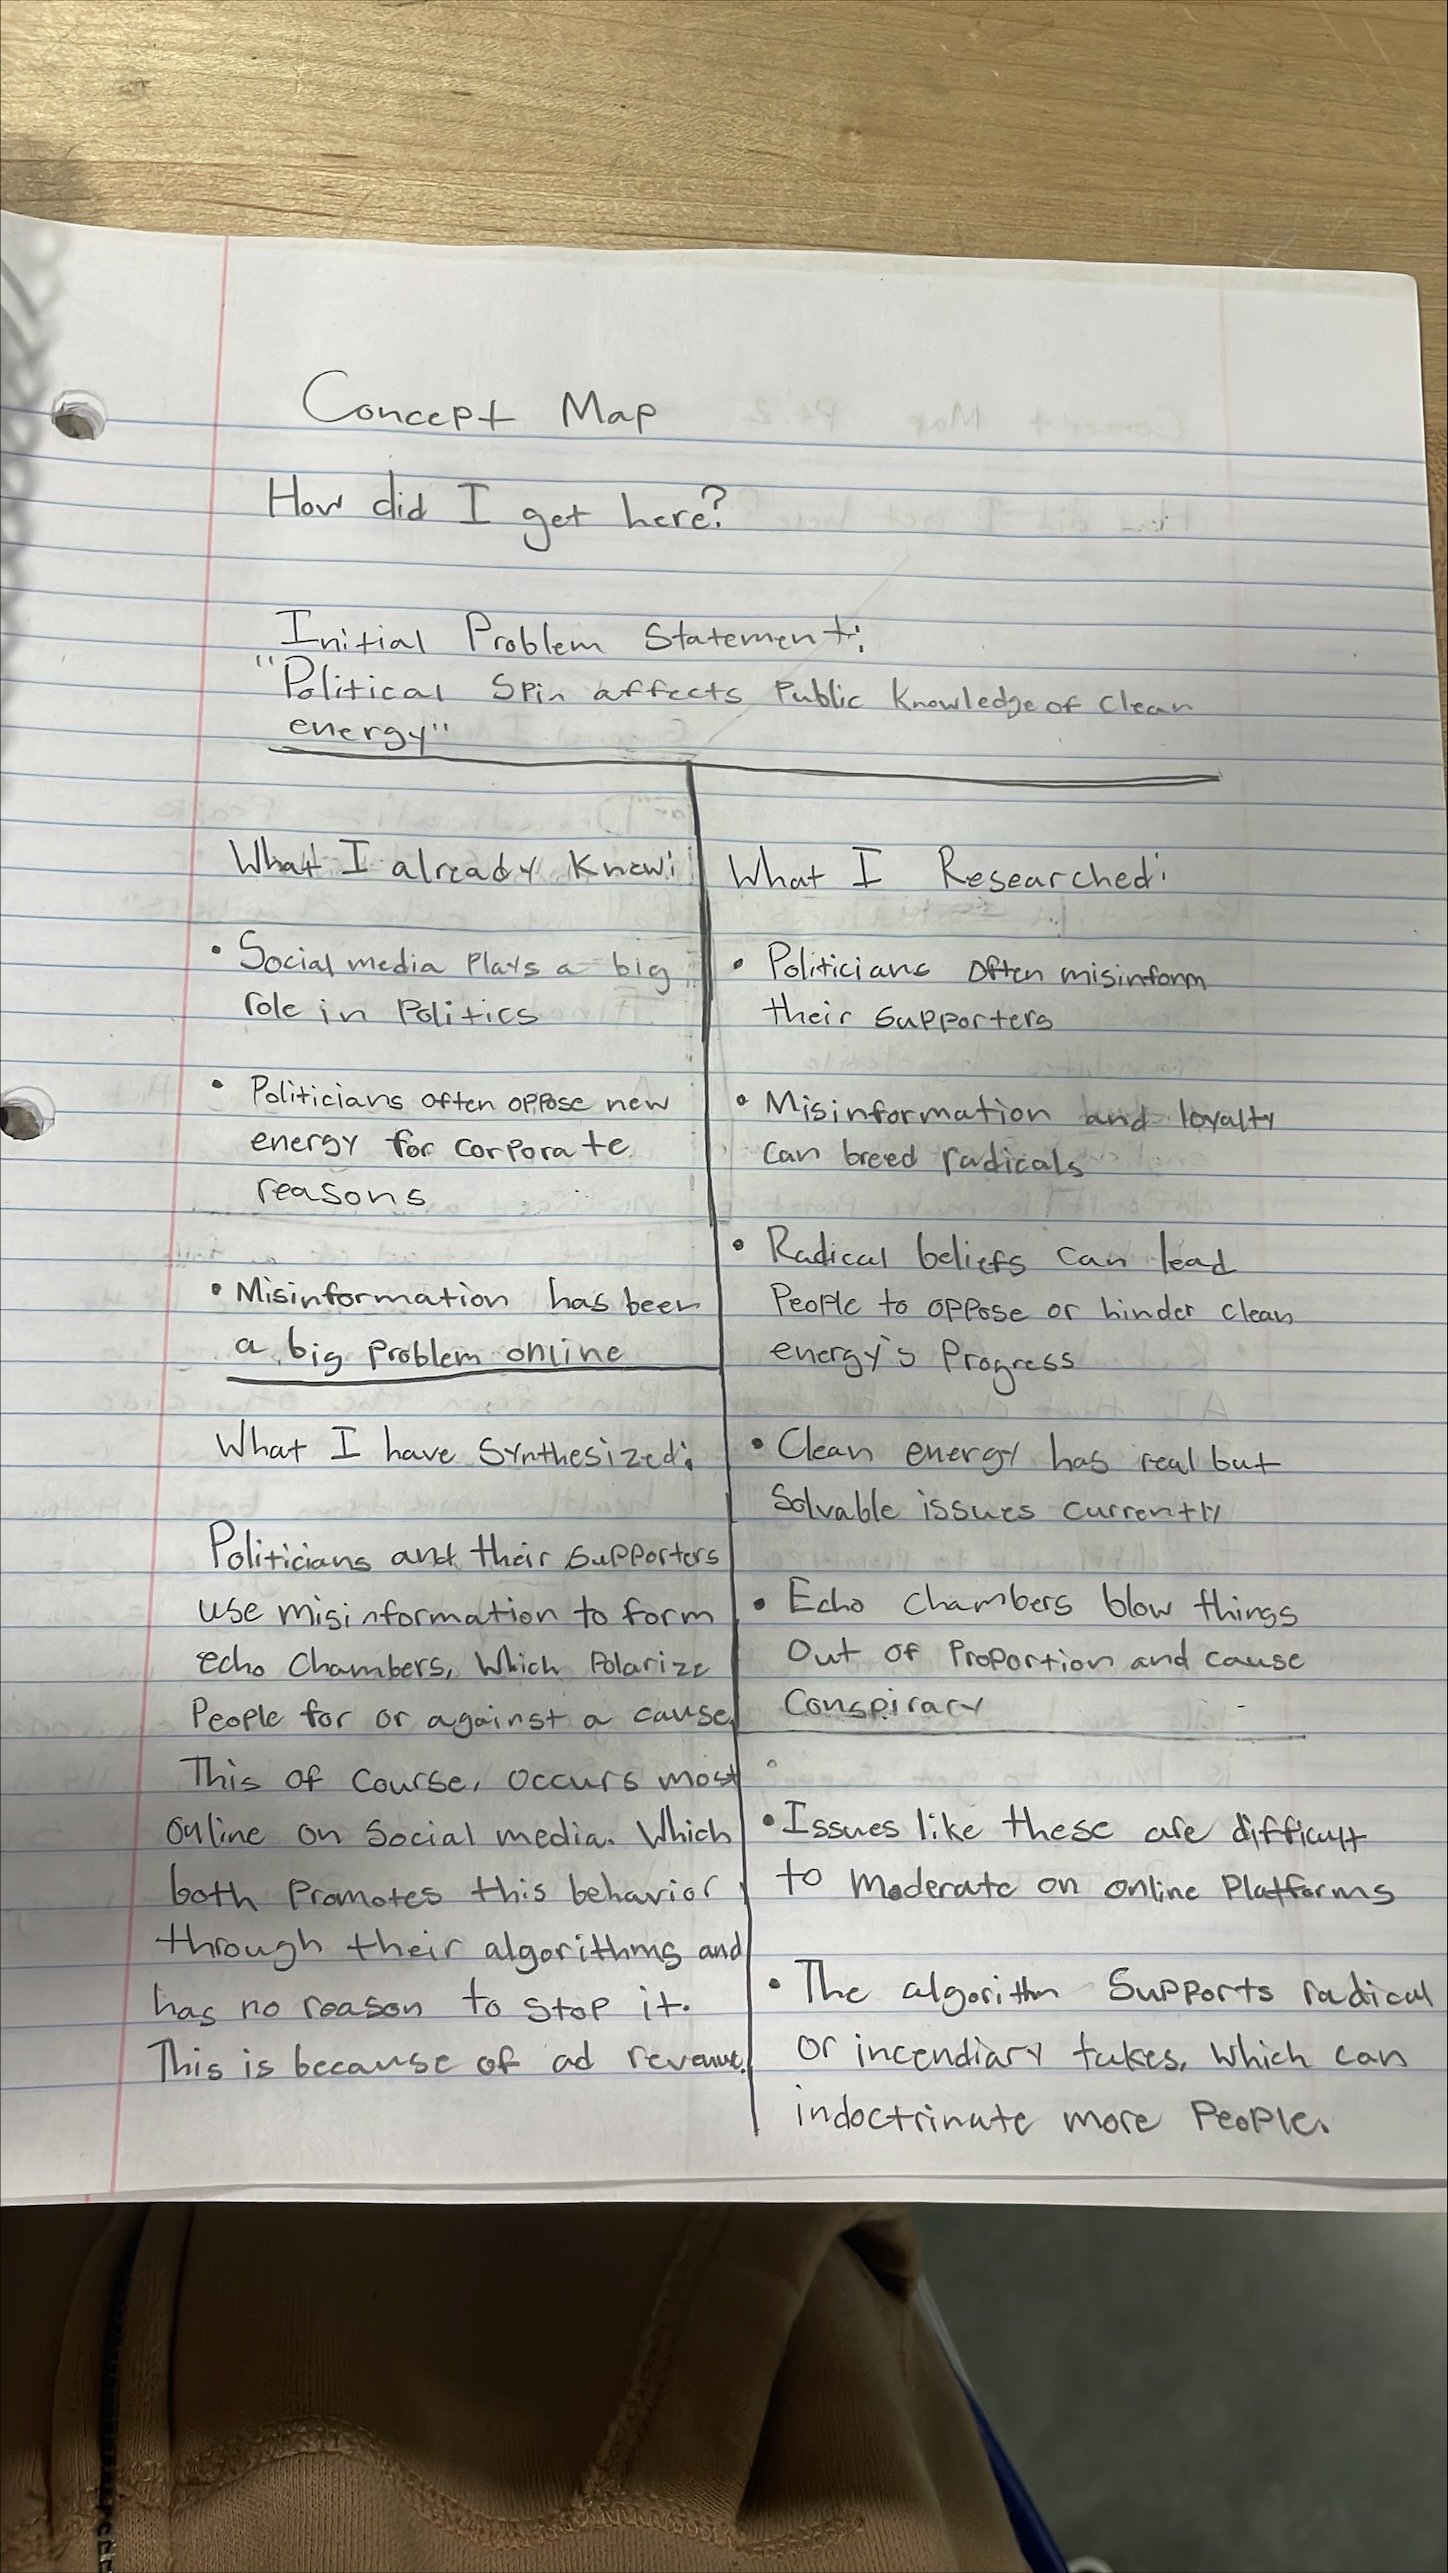 Concept Map
How did I get here?
Initial Problem Statement:
"Political Spin affects Public Knowledge of Clean
energy"
What I already Know:
• Social media Plays a big
role in Politics
• Politicians often oppose new
energy for corporate
reasons
• Misinformation has been
a big Problem online
What I have Synthesized:
Politicians and their Supporters
use misinformation to form
echo Chambers, Which Polarize
People for or against a cause.
This of Course, occurs most
online on Social media. Which
both Promotes this behavior
through their algorithms and
has no reason to stop it.
This is because of ad revenue.
What I Researched:
• Politicians Often misinform
their Supporters
• Misinformation and loyalty
can breed radicals
• Radical beliefs can lead
People to oppose or hinder clean
energy's Progress
• Clean energy has real but
Solvable issues currently
• Echo chambers blow things
Out of Proportion and cause
Conspiracy
• Issues like these are difficult
to Moderate on online Platforms
• The algorithm Supports radical
or incendiary takes, Which can
indoctrinate more People.